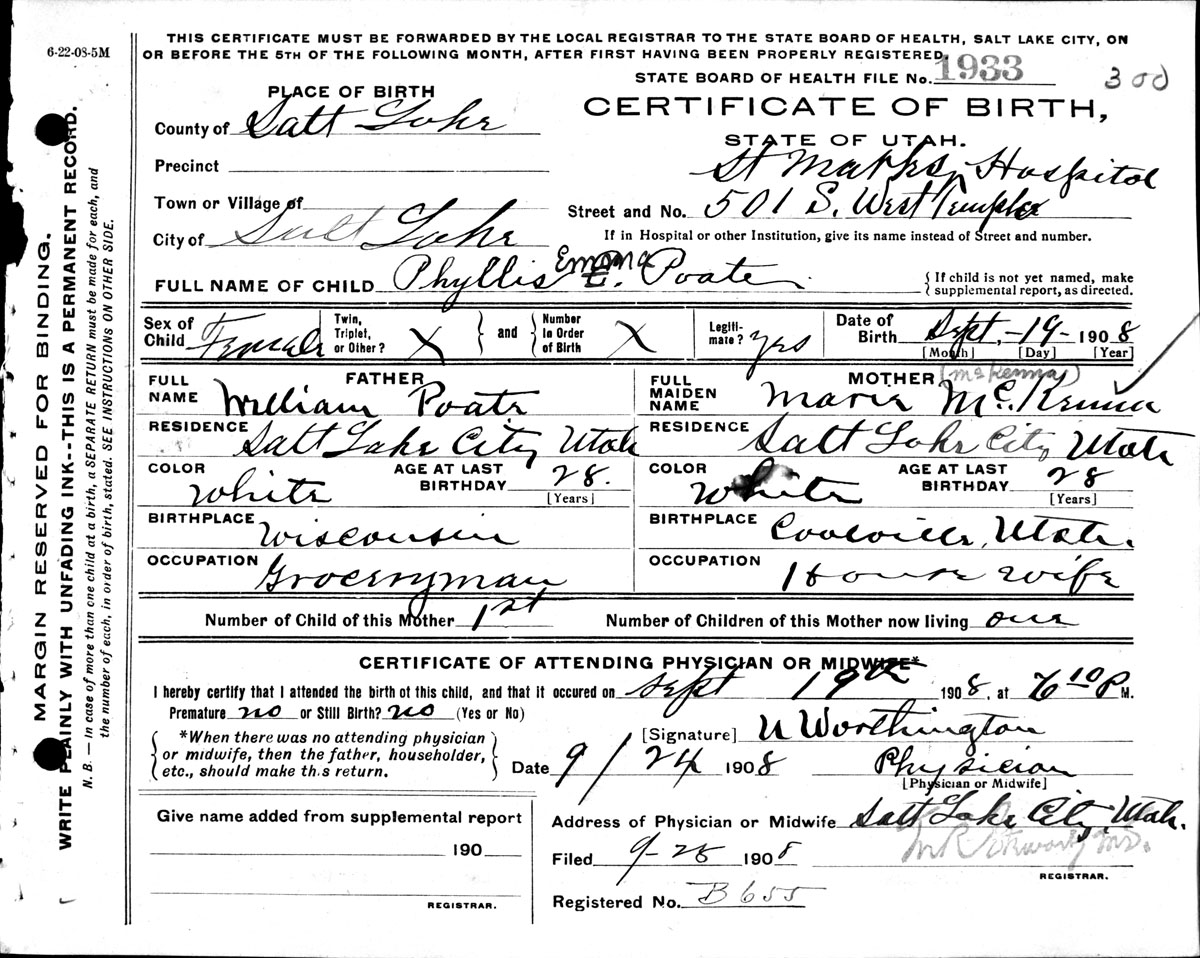 6-22-08-5M
THIS CERTIFICATE MUST BE FORWARDED BY THE LOCAL REGISTRAR TO THE STATE BOARD OF HEALTH, SALT LAKE CITY, ON
OR BEFORE THE 5TH OF THE FOLLOWING MONTH, AFTER FIRST HAVING BEEN PROPERLY REGISTERED.
STATE BOARD OF HEALTH FILE No. 1933
300
PLACE OF BIRTH
CERTIFICATE OF BIRTH,
STATE OF UTAH.
County of Salt Lake
Precinct
St Marks Hospital
Town or Village of
Street and No. 501 S. West Temple
City of Salt Lake
If in Hospital or other Institution, give its name instead of Street and number.
FULL NAME OF CHILD Phyllis Emma E. Poate
{ If child is not yet named, make
supplemental report, as directed.
Sex of Child Female
Twin, Triplet, or Other? X
and
Number in Order of Birth X
Legitimate? yes
Date of Birth Sept, -19- 1908
[Month] [Day] [Year]
FATHER
FULL NAME William Poate
RESIDENCE Salt Lake City Utah
COLOR White
AGE AT LAST BIRTHDAY 28.
[Years]
BIRTHPLACE Wisconsin
OCCUPATION Groceryman
MOTHER (McKenna)
FULL MAIDEN NAME Marie McKenna
RESIDENCE Salt Lake City Utah
COLOR White
AGE AT LAST BIRTHDAY 28
[Years]
BIRTHPLACE Coalville, Utah.
OCCUPATION House wife
Number of Child of this Mother 1st
Number of Children of this Mother now living one
CERTIFICATE OF ATTENDING PHYSICIAN OR MIDWIFE*
I hereby certify that I attended the birth of this child, and that it occured on Sept 19th 1908, at 6 10 P M.
Premature no or Still Birth? no (Yes or No)
{ *When there was no attending physician
or midwife, then the father, householder,
etc., should make this return. }
[Signature] U Worthington
Date 9/24 1908
Physician
[Physician or Midwife]
Give name added from supplemental report
190
REGISTRAR.
Address of Physician or Midwife Salt Lake City, Utah.
Filed 9-28 1908
REGISTRAR.
Registered No. B 655
MARGIN RESERVED FOR BINDING.
WRITE PLAINLY WITH UNFADING INK--THIS IS A PERMANENT RECORD.
N. B. — In case of more than one child at a birth, a SEPARATE RETURN must be made for each, and
the number of each, in order of birth, stated. SEE INSTRUCTIONS ON OTHER SIDE.